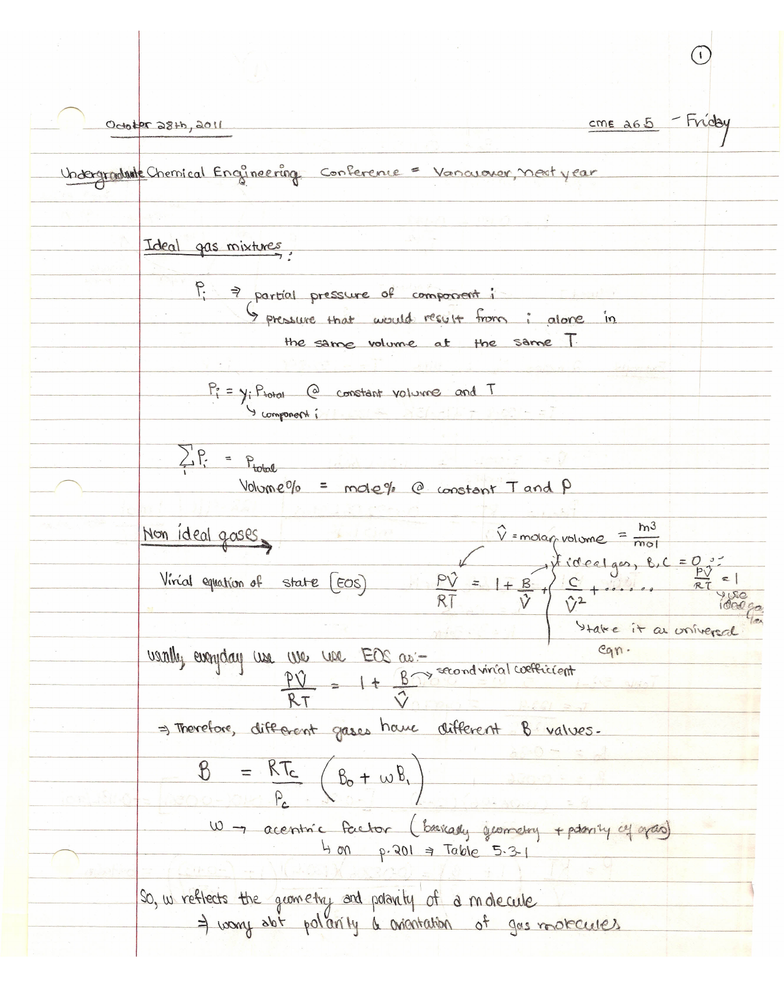 ①
October 28th, 2011 CME 265 - Friday
Undergraduate Chemical Engineering Conference = Vancouver, next year
Ideal gas mixtures:
Pi ⇒ partial pressure of component i
↳ pressure that would result from i alone in
the same volume at the same T.
Pi = yi Ptotal @ constant volume and T
↳ component i
∑i Pi = Ptotal
Volume% = mole% @ constant T and P
Non ideal gases
V̂ = molar volume = m³/mol
if ideal gas, B, C = 0 ∵ PV̂/RT = 1
↳ use ideal gas
Virial equation of state [EOS] PV̂/RT = 1 + B/V̂ + C/V̂² + ......
↳ take it as universal
eqn.
usually everyday use we use EOS as:-
PV̂/RT = 1 + B/V̂ → second virial coefficient
⇒ Therefore, different gases have different B values.
B = RTc/Pc (B0 + ωB1)
ω → acentric factor (basically geometry + polarity of gas)
↳ on p.201 ⇒ Table 5.3-1
So, ω reflects the geometry and polarity of a molecule
⇒ worry abt polarity & orientation of gas molecules